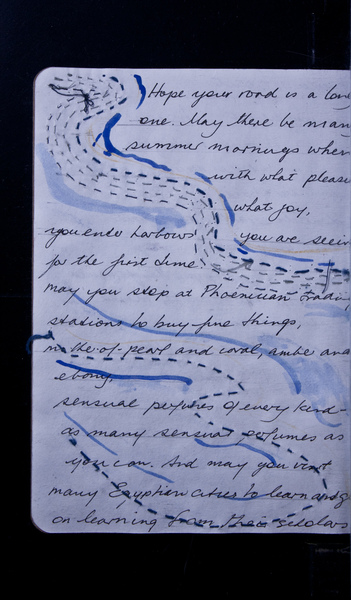 Hope your road is a long
one. May there be many
summer mornings when
with what pleasure
what joy,
you enter harbours you are seeing
for the first time.
may you stop at Phoenician trading
stations to buy fine things,
mother of pearl and coral, amber and
ebony.
sensual perfumes of every kind-
as many sensual perfumes as
you can. And may you visit
many Egyptian cities to learn and g
on learning from their scholars